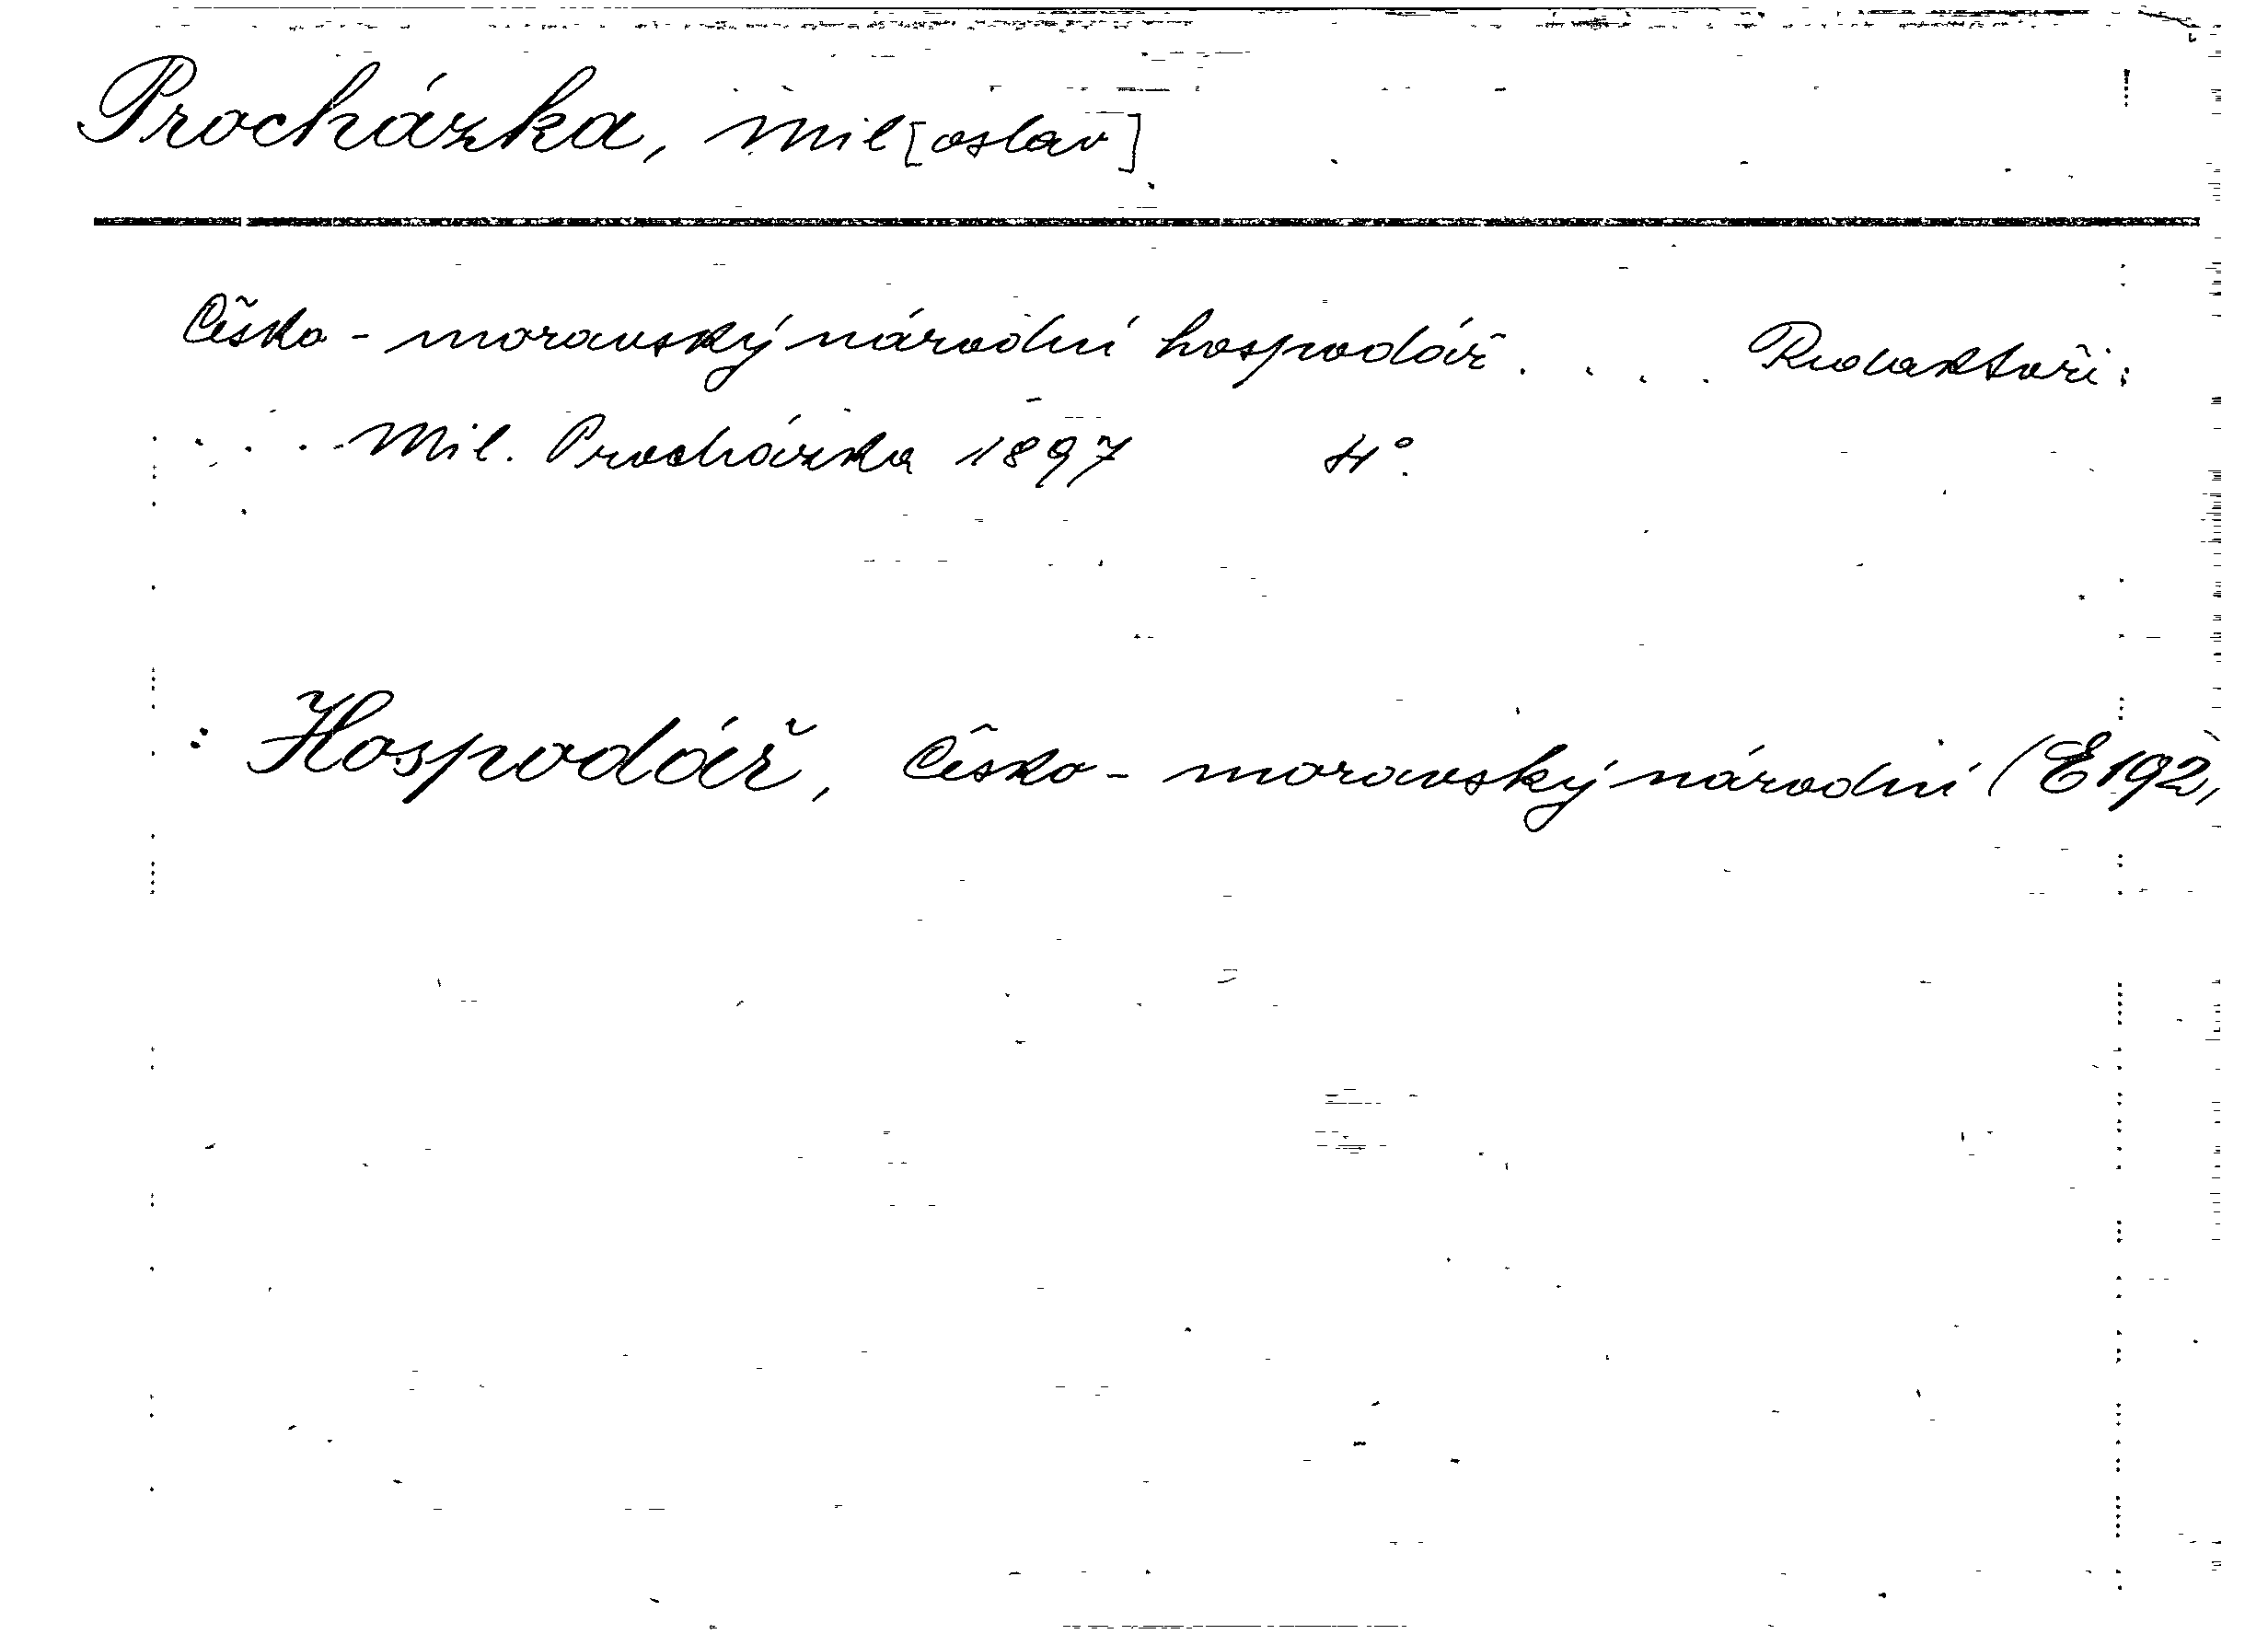 Procházka, Mil[oslav]
Česko - moravský národní hospodář. . . . Redaktoři:
. . . Mil. Procházka 1897 4°.
: Hospodář, Česko - moravský národní (E 192,